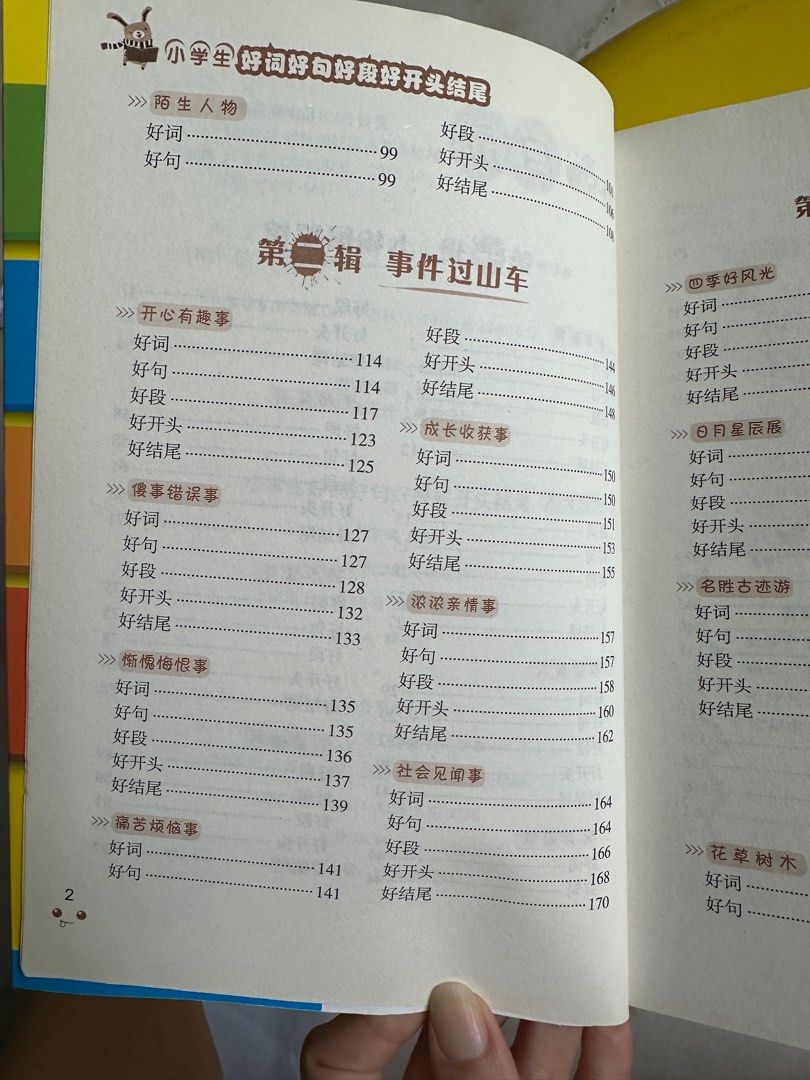 小学生好词好句好段好开头结尾
陌生人物
好词 99
好句 99
好段 101
好开头 106
好结尾 108
第二辑 事件过山车
开心有趣事
好词 114
好句 114
好段 117
好开头 123
好结尾 125
傻事错误事
好词 127
好句 127
好段 128
好开头 132
好结尾 133
惭愧悔恨事
好词 135
好句 135
好段 136
好开头 137
好结尾 139
痛苦烦恼事
好词 141
好句 141
好段 144
好开头 146
好结尾 148
成长收获事
好词 150
好句 150
好段 151
好开头 153
好结尾 155
浓浓亲情事
好词 157
好句 157
好段 158
好开头 160
好结尾 162
社会见闻事
好词 164
好句 164
好段 166
好开头 168
好结尾 170
2
第
四季好风光
好词
好句
好段
好开头
好结尾
日月星辰展
好词
好句
好段
好开头
好结尾
名胜古迹游
好词
好句
好段
好开头
好结尾
花草树木
好词
好句